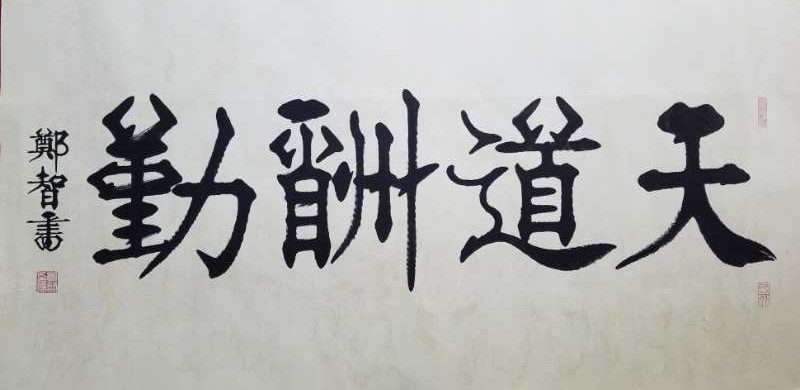 天道酬勤
鄭智書